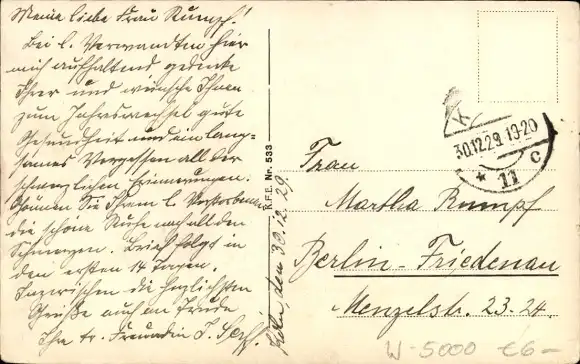 Meine liebe Frau Rumpf!
Bei l. Verwandten hier
mich aufhaltend gedenke
Ihrer und wünsche Ihnen
zum Jahreswechsel gute
Gesundheit und ein lang-
sames Vergessen all der
schmerzlichen Erinnerungen.
Gönnen Sie Ihrem l. Verstorbenen
die schöne Ruhe nach all den
Schmerzen. Brief folgt in
den ersten 14 Tagen.
Inzwischen die herzlichsten
Grüße auch an Trude
Ihre tr. Freundin J.
den 30.12.29
R.F.E. Nr. 533
K
30.12.29. 19-20
* 11 c
Frau
Martha Rumpf
Berlin-Friedenau
Menzelstr. 23-24.
W-5000 €6-